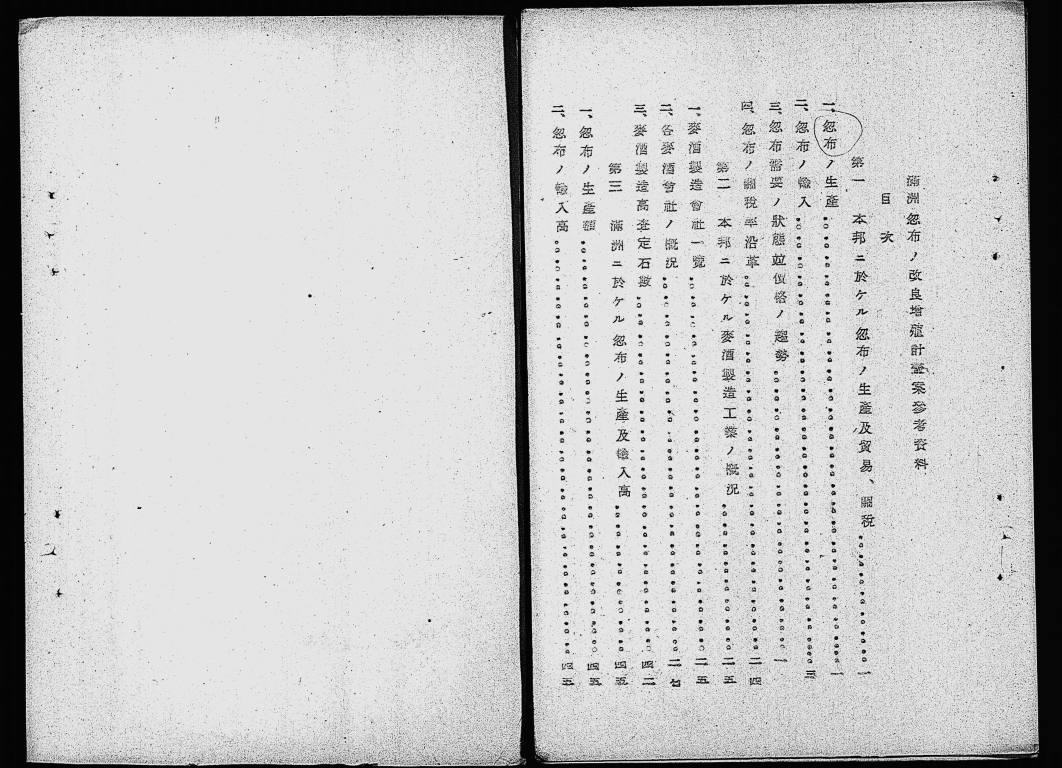 滿洲忽布ノ改良增殖計畫案參考資料
目次
第一 本邦ニ於ケル忽布ノ生產及貿易、關稅……一
一、忽布ノ生產……一
二、忽布ノ輸入……三
三、忽布需要ノ狀態竝價格ノ趨勢……一
四、忽布ノ關稅率沿革……二四
第二 本邦ニ於ケル麥酒製造工業ノ概況……二五
一、麥酒製造會社一覽……二五
二、各麥酒會社ノ概況……二七
三、麥酒製造高査定石數……四二
第三 滿洲ニ於ケル忽布ノ生產及輸入高……四五
一、忽布ノ生產額……四五
二、忽布ノ輸入高……四五